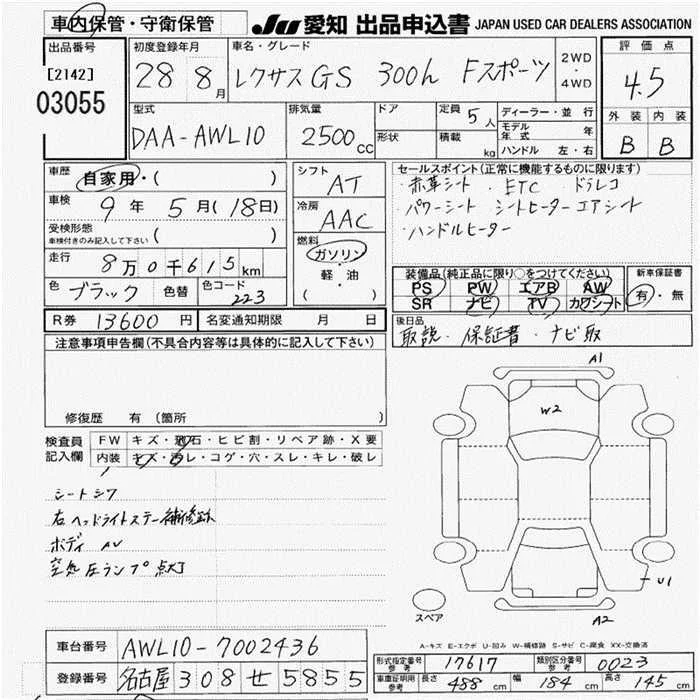 車内保管・守衛保管
JU 愛知 出品申込書 JAPAN USED CAR DEALERS ASSOCIATION
出品番号
[2142]
03055
初度登録年月
28 8月
車名・グレード
レクサスGS 300h Fスポーツ
2WD
・
4WD
評価点
4.5
外装 内装
B B
型式
DAA-AWL10
排気量
2500cc
ドア
形状
定員 5人
積載 kg
ディーラー・並行
モデル年式 年
ハンドル 左・右
車歴
自家用・( )
車検
9年 5月(18日)
受検形態
車検付きのみ記入して下さい ( )
走行
8万0千615km
色 ブラック 色替 色コード 223
シフト
AT
冷房
AAC
燃料
ガソリン
・
軽・油
( )
セールスポイント(正常に機能するものに限ります)
・赤革シート ・ETC ・ドラレコ
・パワーシート シートヒーター エアシート
・ハンドルヒーター
装備品(純正品に限り○をつけてください)
PS PW エアB AW
SR ナビ TV カワシート
新車保証書
有・無
後日品
取説・保証書・ナビ取
R券 13600円 名変通知期限 月 日
注意事項申告欄(不具合内容等は具体的に記入して下さい)
修復歴 有 (箇所 )
検査員
記入欄
FW キズ・飛石・ヒビ割・リペア跡・X要
内装 キズ・汚レ・コゲ・穴・スレ・キレ・破レ
シートシワ
右ヘッドライトステー補修跡
ボディ AU
空気圧ランプ点灯
A1
W2
U1
A2
スペア
A-キズ E-エクボ U-凹み W-補修跡 S-サビ C-腐食 XX-交換済
車台番号 AWL10-7002436
登録番号 名古屋 308 せ 5855
形式指定番号 参考 17617 類別区分番号 参考 0023
車庫証明用 参考 長さ 488cm 幅 184cm 高さ 145cm